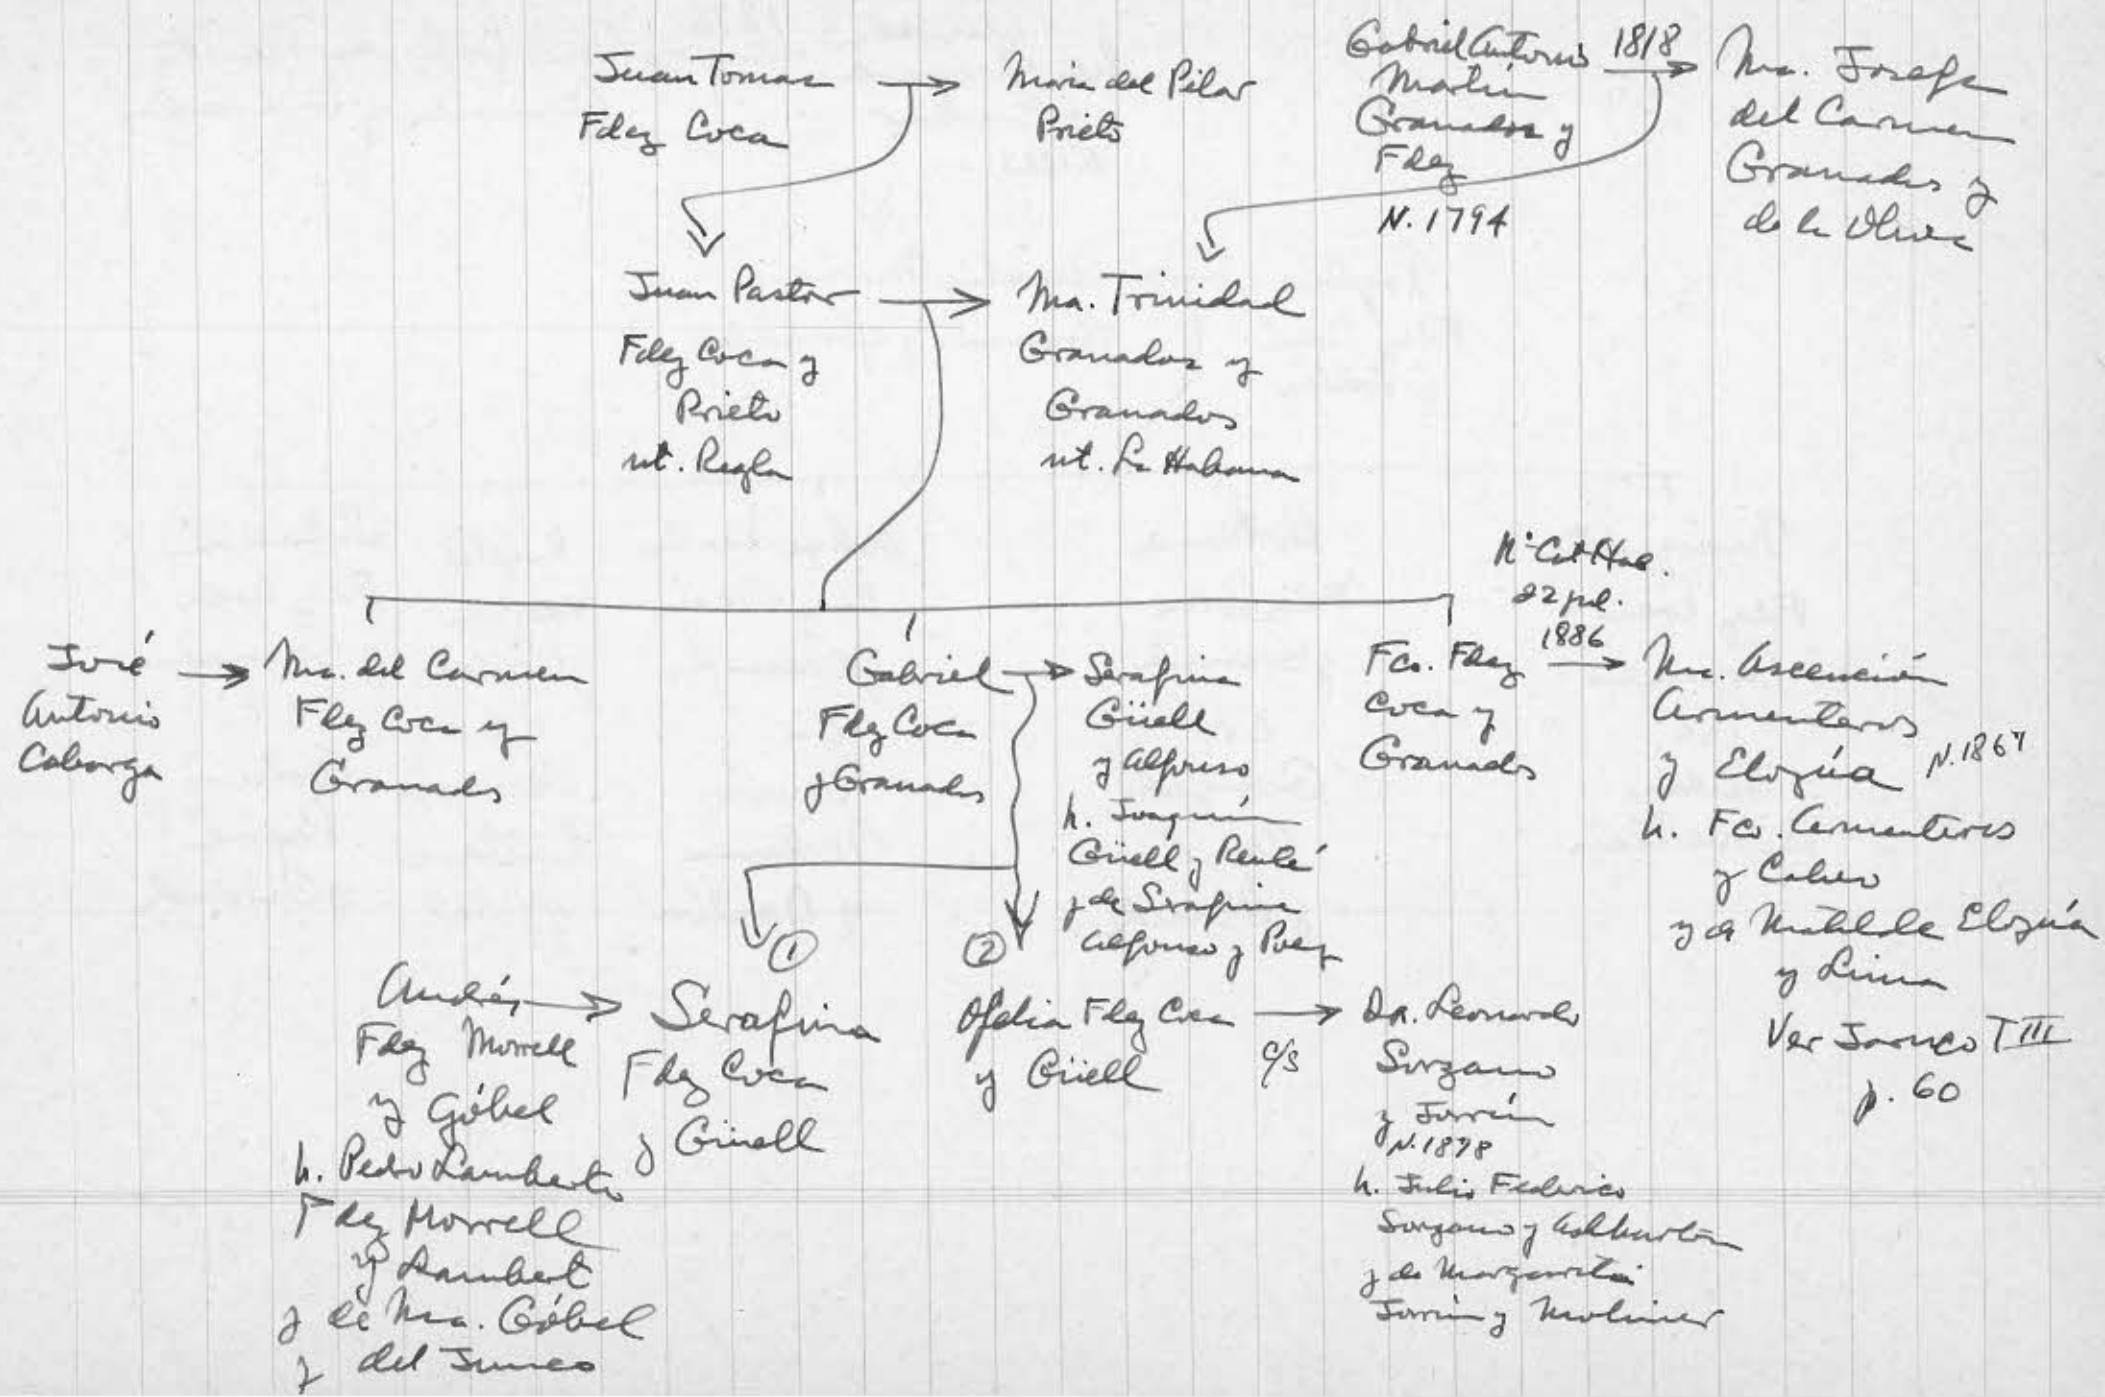 Juan Tomas
Fdez Coca
Maria del Pilar
Prieto
Gabriel Antonio
Martin
Granados y
Fdez
N. 1794
1818
Ma. Josefa
del Carmen
Granados y
de la Oliva
Juan Pastor
Fdez Coca y
Prieto
nt. Regla
Ma. Trinidad
Granados y
Granados
nt. La Habana
José
Antonio
Ma. del Carmen
Fdez Coca y
Granados
Gabriel
Fdez Coca
y Granados
Serafina
Güell
y Alfonso
h. Joaquín
Güell y Renté
y de Serafina
Alfonso y Poey
Fco. Fdez
Coca y
Granados
Cat. Hab.
22 jul.
1886
Ma. Ascención
Armenteros
y Elozúa
h. Fco. Armenteros
y Calvo
y de Matilde Elozúa
y Lima
Ver Jaruco T III
p. 60
Andrés
Fdez Morrell
y Góbel
h. Pedro Lamberto
Fdez Morrell
y Lambert
y de Ma. Góbel
y del Junco
①
Serafina
Fdez Coca
y Güell
②
Ofelia Fdez Coca
y Güell
c/s
Dr. Leonardo
Sorzano
y Jorrín
N. 1878
h. Julio Federico
Sorzano y
y de Margarita
Jorrín y Moliner